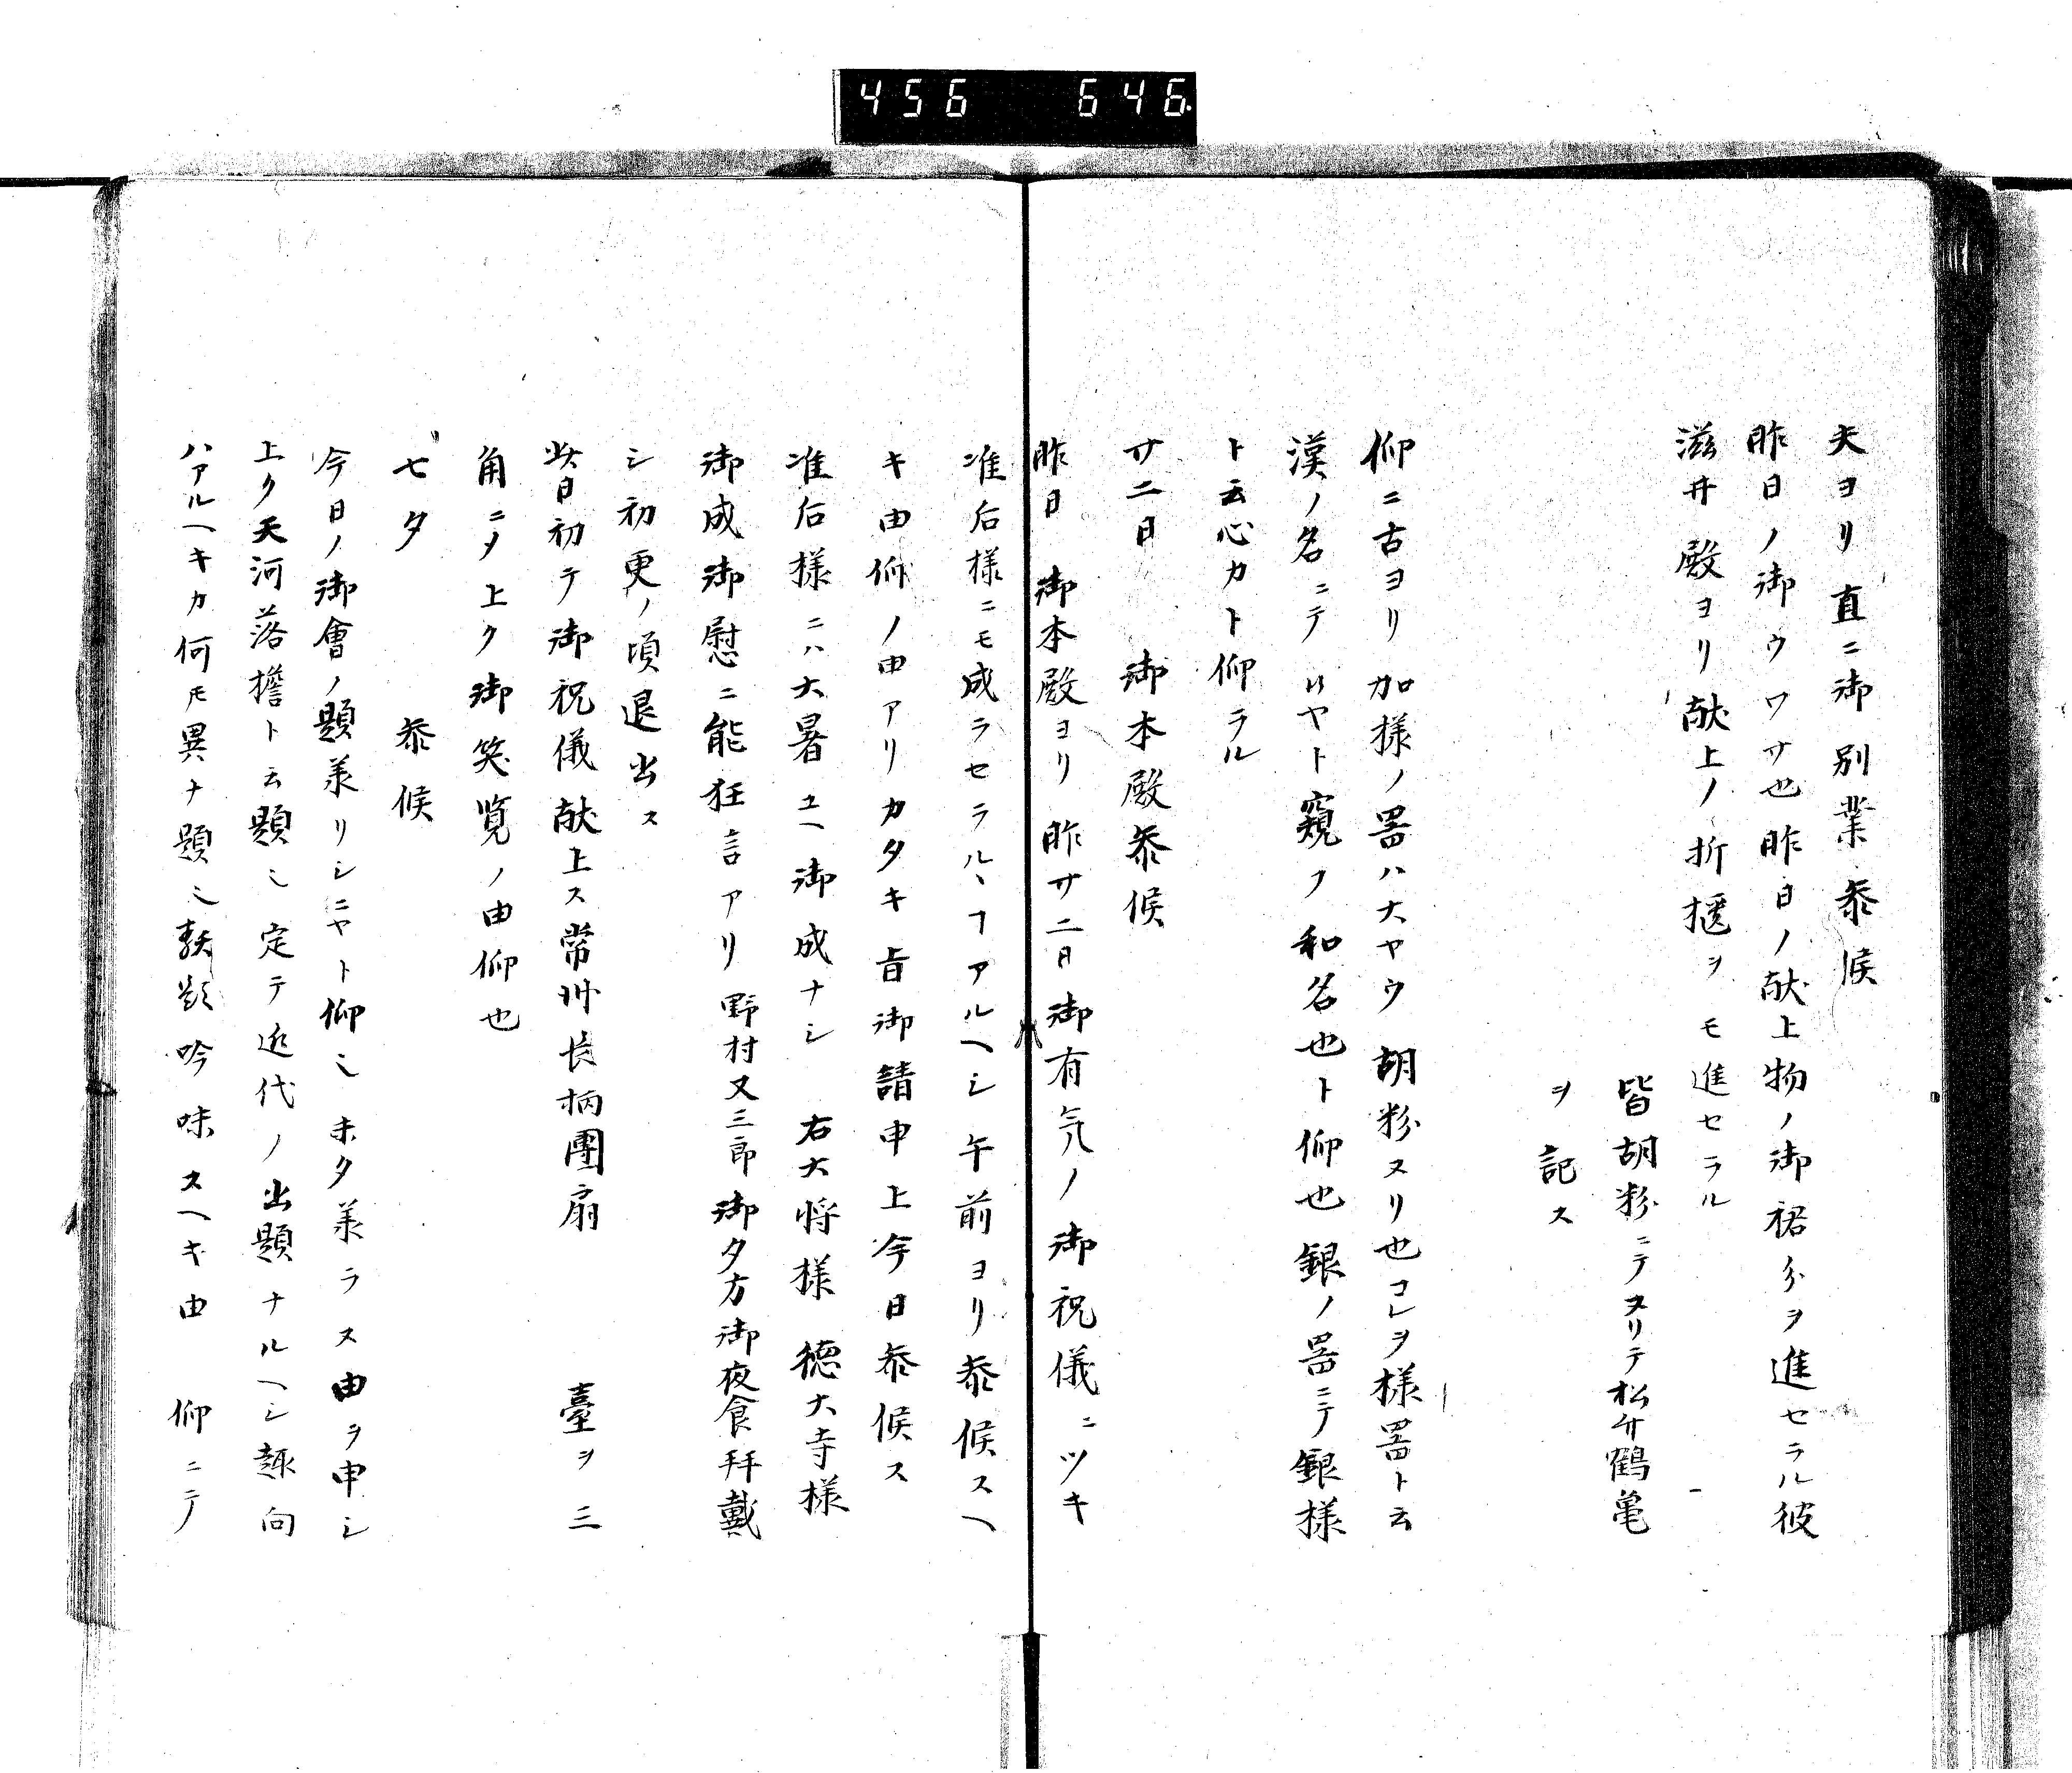 456 646
夫ヨリ直ニ御別業参候
昨日ノ御ウワサ也昨日ノ献上物ノ御裾分ヲ進セラル彼
滋井殿ヨリ献上ノ折櫃ヲモ進セラル
皆胡粉ニテヌリテ松竹鶴亀
ヲ記ス
仰ニ古ヨリ加様ノ器ハ大ヤウ胡粉ヌリ也コレヲ様器ト云
漢ノ名ニテ ヤト窺フ和名也ト仰也銀ノ器ニテ銀様
ト云心カト仰ラル
廿二日 御本殿参候
昨日 御本殿ヨリ昨廿二日御有気ノ御祝儀ニツキ
准后様ニモ成ラセラル丶ヿアルヘシ午前ヨリ参候スヘ
キ由仰ノ由アリカタキ旨御請申上今日参候ス
准后様ニハ大暑ユヘ御成ナシ 右大将様 徳大寺様
御成御慰ニ能狂言アリ野村又三郎御夕方御夜食拝戴
シ初更ノ頃退出ス
此日初テ御祝儀献上ス常州長柄團扇 臺ヲ三
角ニメ上ク御笑覧ノ由仰也
七夕 参候
今日ノ御會ノ題羕リシニヤト仰ミ未タ羕ラス由ヲ申シ
上ク天河落檐ト云題ミ定テ近代ノ出題ナルヘシ趣向
ハアルヘキカ何モ異ナ題ミ 吟味スヘキ由 仰ニテ